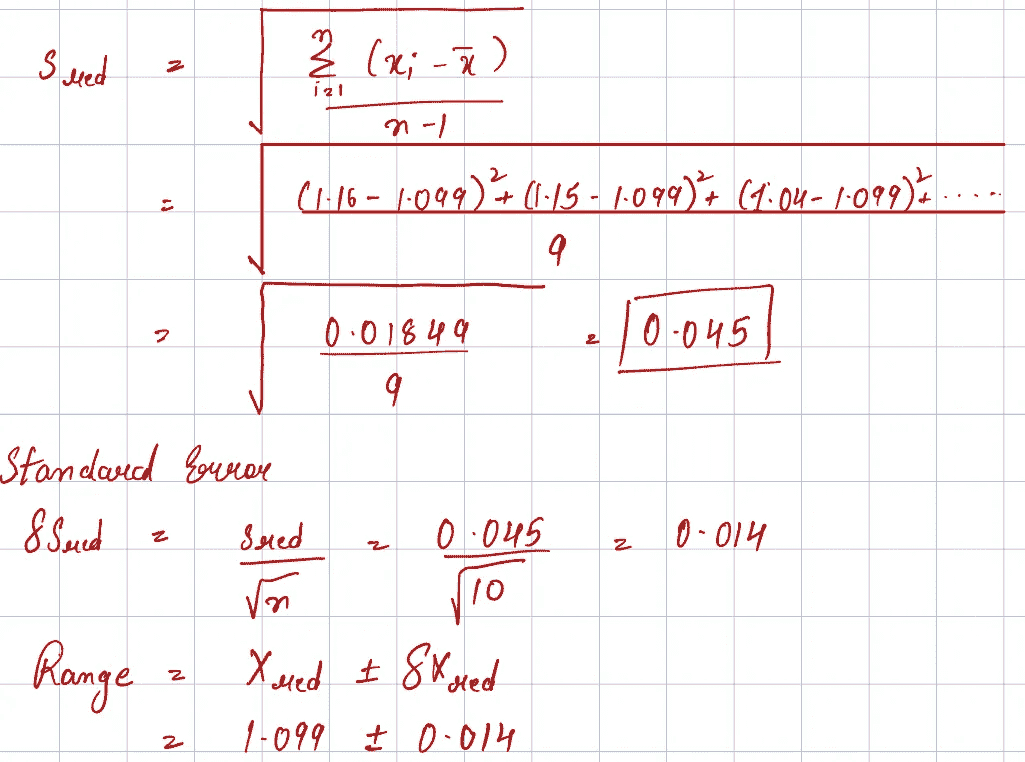 S_red = √( Σ_{i=1}^{n} (x_i - x̄) / (n-1) )
= √( ((1.16 - 1.099)² + (1.15 - 1.099)² + (1.04 - 1.099)² + .....) / 9 )
= √( 0.01849 / 9 ) = 0.045
Standard Error
δS_red = S_red / √n = 0.045 / √10 = 0.014
Range = X_red ± δX_red
= 1.099 ± 0.014